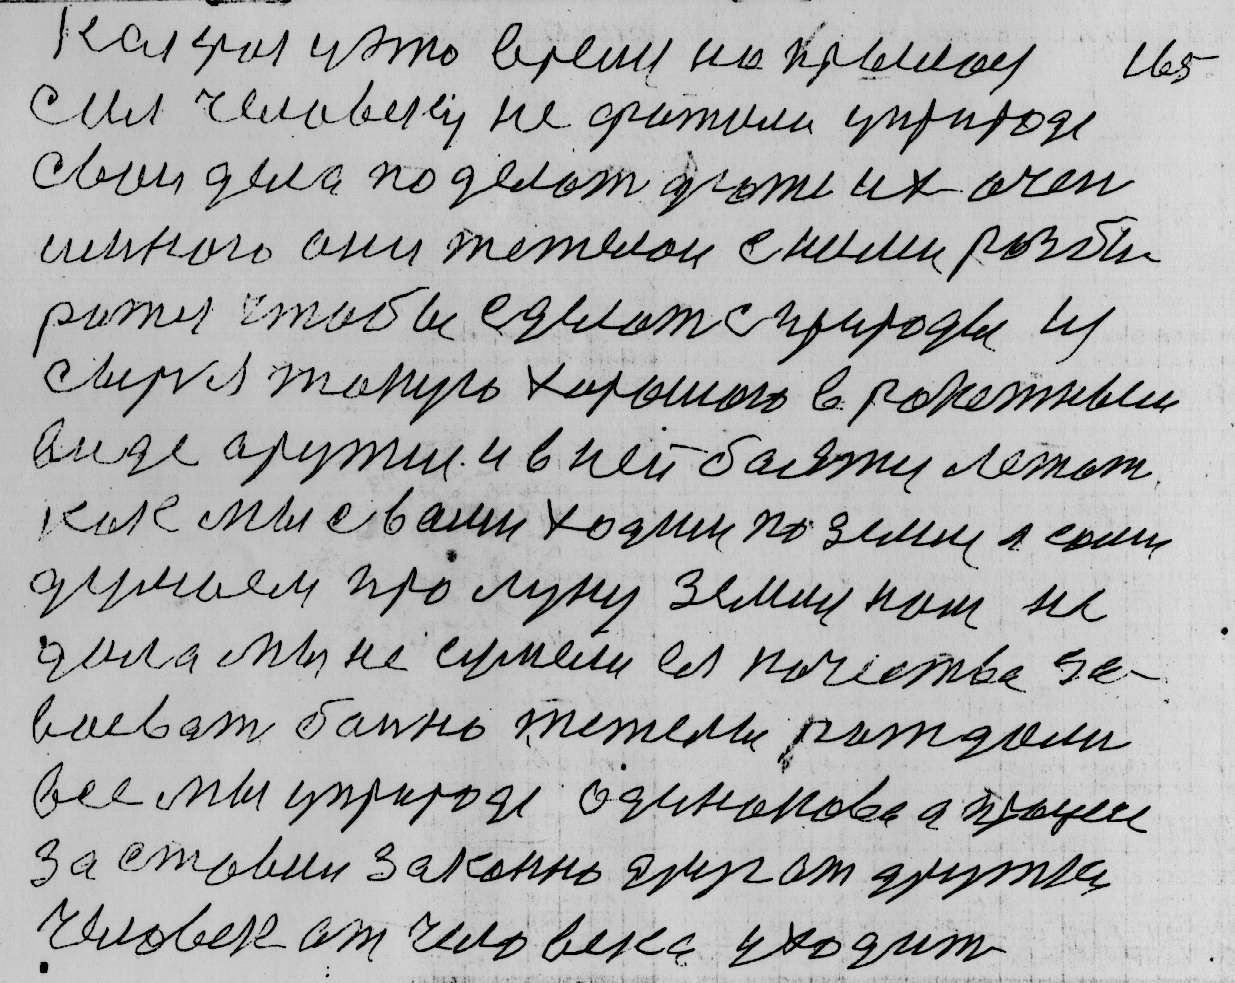 Которая у это время на прямой 165
сил человеку не хватили у природе
свои дела поделат даже их очен
много они тежелои с ними разби
ратся чтобы сделат с природы и
сыря такую хорошого в ракетным
виде аружии и в ней бальжи летат
как мы с вами ходим по земли а сами
думаем про луну земли нам не
дала мы не сумели ея качества за-
воеват баино тежелы раждали
все мы у природе одинакова а процес
заставил законно друг ат дружки
человек ат человека уходит